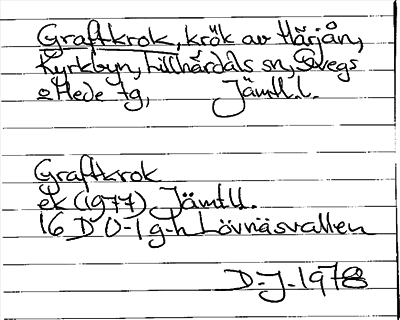 Graftkrok, krök av Härjån,
Kyrkbyn, Lillhärdals sn, Svegs
o Hede tg, Jämtl.l.
Graftkrok
ek (1977) Jämtl.l.
16 D 0-1 g-h Lövnäsvallen
D-J-1978